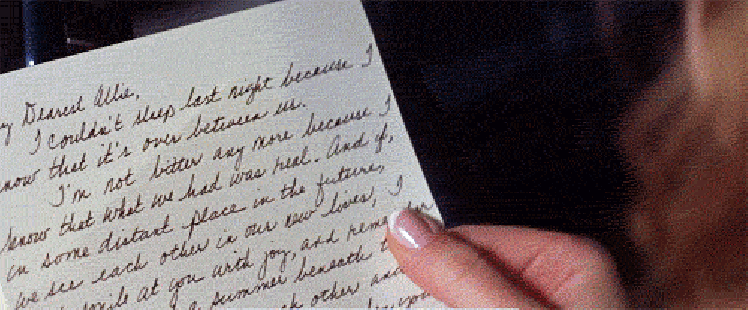 y Dearest Allie,
I couldn't sleep last night because I
now that it's over between us.
I'm not bitter any more because I
know that what we had was real. And if,
in some distant place in the future,
we see each other in our new lives, I
smile at you with joy, and reme
a summer beneath t
ch other and
you